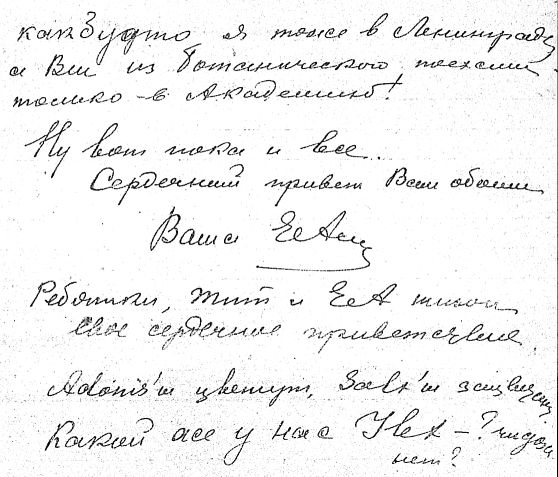 как будто я тоже в Ленинграде
а Вы из Ботанического поехали
только в Академию!
Ну вот пока и все.
Сердечный привет Вам обоим
Ваша
Ребятки, и ЕеА
свое сердечное приветствие.
Adonis'ы цветут,
Какой же у нас Ilex – ?
нет?